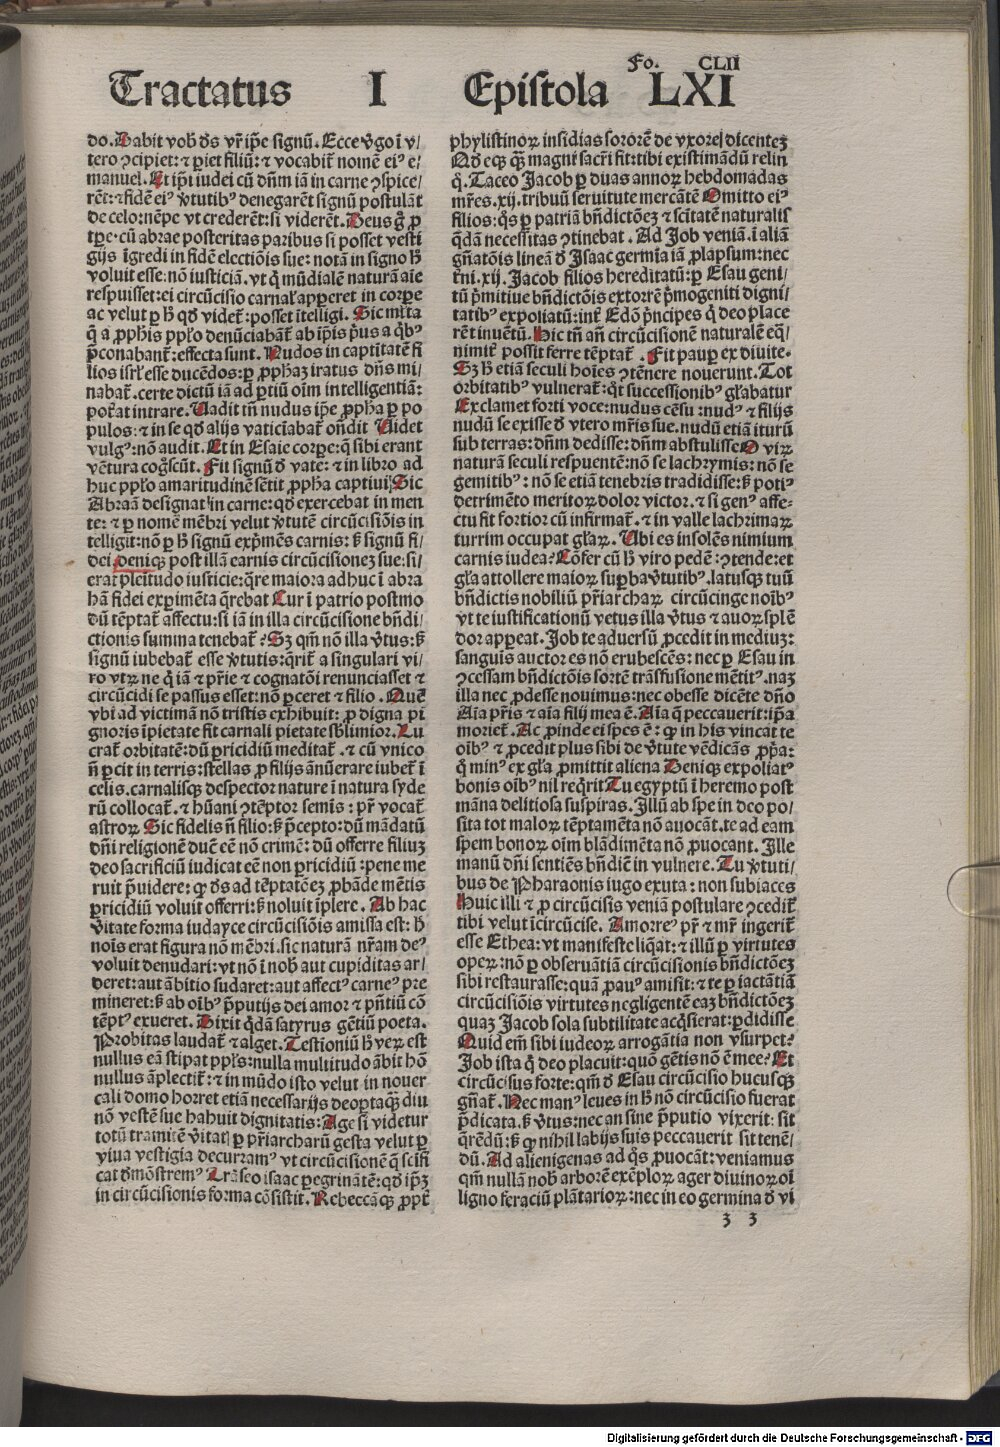 Fo. CLII
Tractatus I Epistola LXI
do. Dabit vob̄ ds̄ vr̄ ip̄e signū. Ecce v̄go ī v/
tero ꝯcipiet: ⁊ piet filiū: ⁊ vocabit̄ nomē eiꝰ e/
manuel. Et ip̄i iudei cū dn̄m iā in carne ꝯspice/
rēt: ⁊ fidē eiꝰ v̄tutibꝰ denegarēt signū postulāt
de celo: nēpe vt crederēt: si viderēt. Deus g̊ ꝓ
tp̄e. cū abrae posteritas paribus si posset vesti
gijs īgredi in fidē electiōis sue: notā in signo h̄
voluit esse: nō iusticiā. vt q̄ mūdialē naturā aīe
respuisset: ei circūcisio carnal̄ apperet in corpe
ac velut p h̄ qd̄ videt̄: posset ītelligi. Sic ml̄ta
q̄ a ꝓphis ppl̄o denūciabāt̄ ab ip̄is p̄us a qb̄ꝰ
p̄conabant̄: effecta sunt. Nudos in captītatē fi
lios isrl̄ esse ducēdos: ꝑ ꝓph̄az iratus dn̄s mi/
nabat̄. certe dictū iā ad ꝑtiū oīm intelligentiā:
pot̄at intrare. Vadit tn̄ nudus ip̄e ꝓph̄a ꝑ po
pulos: ⁊ in se qd̄ alijs vaticīabat̄ on̄dit Videt
vulgꝰ: nō audit. Et in Esaie corpe: q̄ sibi erant
vētura cog̊scūt. Fit signū d̄ vate: ⁊ in libro ad
huc ppl̄o amaritudinē sētit ꝓph̄a captiui. Sic
Abraā designat̄ in carne: qd̄ exercebat in men
te: ⁊ ꝑ nomē mēbri velut v̄tutē circūcisiōis in
telligit: nō ꝑ h̄ signū exp̄mēs carnis: s̄ signū fi/
dei Deniqꝫ post illā carnis circūcisionez sue: si/
erat plēitudo iusticie: q̄re maiora adhuc ī abra
hā fidei experimēta q̄rebat Cur ī patrio postmo
dū tēptat̄ affectu: si iā in illa circūcisione bn̄di/
ctionis summa tenebat̄? Sꝫ qm̄ nō illa v̄tus: s̄
signū iubebat̄ esse v̄tutis: q̄rit̄ a singulari vi/
ro vtꝝ ne q̄ iā ⁊ pr̄ie ⁊ cognatōi renunciasset ⁊
circūcidi se passus esset: nō ꝑceret ⁊ filio. Quē
vbi ad victimā nō tristis exhibuit: ꝓ digna pi
gnoris īpietate fit carnali pietate sb̄limior. Lu
crat̄ orbitatē: dū ꝑricidiū meditat̄. ⁊ cū vnico
n̄ ꝑcit in terris: stellas ꝓ filijs ānūerare iubet̄ ī
celis. carnalisqꝫ despector nature ī natura syde
rū collocat̄. ⁊ hūani ꝯtēptor semīs: pr̄ vocat̄
astroꝝ Sic fidelis n̄ filio: s̄ p̄cepto: dū mādatū
dn̄i religionē duc̄ eē nō crimē: dū offerre filiuꝫ
deo sacrificiū iudicat eē non ꝑricidiū: pene me
ruit p̄uidere: qꝫ ds̄ ad tēptatēeꝫ ꝓbāde mētis
ꝑricidiū voluit offerri: s̄ noluit īplere. Ab hac
v̄itate forma iudayce circūcisiōis amissa est: h̄
noīs erat figura nō mēbri. sic naturā nr̄am deꝰ
voluit denudari: vt nō ī nob̄ aut cupiditas ar/
deret: aut ābitio sudaret: aut affectꝰ carneꝰ pre
mineret: s̄ ab oīb̄ꝰ p̄putijs dei amor ⁊ pn̄tiū cō
tēptꝰ exueret. Dixit q̄dā satyrus gētiū poeta.
Probitas laudat̄ ⁊ alget. Testioniū h̄ veꝝ est
nullus eā stipat ppl̄s: nulla multitudo ābit hō
nullus āplectit̄: ⁊ in mūdo isto velut in nouer
cali domo horret etiā necessarijs deoptaqꝫ diu
nō vestē sue habuit dignitatis: Age si videtur
totū tramitē v̄itat̄ ꝑ pr̄iarcharū gesta velut ꝑ
viua vestigia decurramꝰ vt circūcisionē q̄ scifi
cat d̄mōstremꝰ Trāseo isaac ꝑegrinātē: qd̄ ip̄ꝫ
in circūcisionis forma cōsistit. Rebeccāqꝫ ꝓpt̄
phylistinoꝝ insidias sororē de vxore dicentez
Qd̄ eqꝫ q̄ꝫ magni sacr̄i fit: tibi existimādū relin
q̄. Taceo Jacob ꝑ duas annoꝝ hebdomadas
mr̄es. xij. tribuū seruitute mercātē Omitto eiꝰ
filios: q̄s ꝑ patriā bn̄dictōez ⁊ scītatē naturalis
q̄dā necessitas ꝯtinebat. Ad Job veniā. ī aliā
gn̄atōis lineā d̄ Isaac germīa iā ꝓlapsum: nec
tn̄i. xij. Jacob filios hereditātū: ꝑ Esau geni/
tū p̄mitiue bn̄dictōis extorrē p̄mogeniti digni/
tatibꝰ expoliatū: int̄ Edō p̄ncipes q̄ deo place
rēt inuētū. Hic tn̄ añ circūcisionē naturalē eq̄/
nimit̄ possit ferre tēptat̄. Fit paup ex diuite.
Sꝫ h̄ etiā seculi hoīes ꝯtēnere nouerunt. Tot
orbitatibꝰ vulnerat̄: q̄t successionibꝰ gl̄abatur
Exclamet forti voce: nudus cēsu: nudꝰ ⁊ filijs
nudū se exisse d̄ vtero mr̄is sue. nudū etiā iturū
sub terras: dn̄m dedisse: dn̄m abstulisse O viꝝ
naturā seculi respuentē: nō se lachrymis: nō se
gemitibꝰ: nō se etiā tenebris tradidisse: s̄ potiꝰ
detrimēto meritoꝝ dolor victor. ⁊ si genꝰ affe/
ctu fit fortior cū infirmat̄. ⁊ in valle lachrimaꝝ
turrim occupat gl̄aꝝ. Vbi es insolēs nimium
carnis iudea? Cōfer cū h̄ viro pedē: ꝯtende: et
gl̄a attollere maioꝝ suꝑba v̄tutibꝰ. latusqꝫ tuū
bn̄dictis nobiliū pr̄iarchaꝝ circūcinge noīb̄ꝰ
vt te iustificationū vetus illa v̄tus ⁊ auoꝝ splē
dor appeat. Job te aduersū ꝓcedit in mediuꝫ:
sanguis auctor es nō erubescēs: nec ꝑ Esau in
ꝯcessam bn̄dictōis sortē trāsfusione mētitꝰ. naꝫ
illa nec ꝓdesse nouimus: nec obesse dicēte dn̄o
Aīa pr̄is ⁊ aīa filij mea ē. Aīa q̄ peccauerit: ip̄a
moriet̄. Ac ꝓinde ei spes ē: qꝫ in his vincat te
oīb̄ꝰ ⁊ ꝓcedit plus sibi de v̄tute vēdicās ꝓpa:
q̄ minꝰ ex gl̄a ꝓmittit aliena Deniqꝫ expoliatꝰ
bonis oīb̄ꝰ nil reqrit̄ Tu egyptū ī heremo post
māna delitiosa suspiras. Illū ab spe in deo po/
sita tot maloꝝ tēptamēta nō auocāt. te ad eam
spem bonoꝝ oīm blādimēta nō ꝓuocant. Ille
manū dn̄i sentiēs bn̄diē in vulnere. Tu v̄tuti/
bus de Pharaonis iugo exuta: non subiaces
Huic illi ⁊ ꝓ circūcisis veniā postulare ꝯcedit̄
tibi velut īcircūcise. Amorreꝰ pr̄ ⁊ mr̄ ingerit̄
esse Ethea: vt manifeste liqat̄: ⁊ illū ꝑ virtutes
opeꝝ: nō ꝑ obseruātiā circūcisionis bn̄dictōez
sibi restaurasse: quā ꝓauꝰ amisit: ⁊ te ꝑ iactātiā
circūcisiōis virtutes negligentē eaz bn̄dictōez
quaz Jacob sola subtilitate acq̄sierat: ꝑdidisse
Quid em̄ sibi iudeoꝝ arrogātia non vsurpet?
Job ista q̄ deo placuit: quō gētis nō ē mee? Et
circūcisus forte: qm̄ d̄ Esau circūcisio hucusqꝫ
gn̄at̄. Nec manꝰ leues in h̄ nō circūcisio fuerat
p̄dicata. s̄ v̄tus: nec an sine p̄putio vixerit: sit
q̄rēdū: s̄ qꝫ nihil labijs suis peccauerit sit tenē/
dū. Ad alienigenas ad q̄s ꝓuocāt: veniamus
qm̄ nullā nob̄ arborē exēploꝝ ager diuinoꝝ oī
ligno feraciū plātarioꝝ: nec in eo germina d̄ vi
ꝫ 3
Digitalisierung gefördert durch die Deutsche Forschungsgemeinschaft - DFG